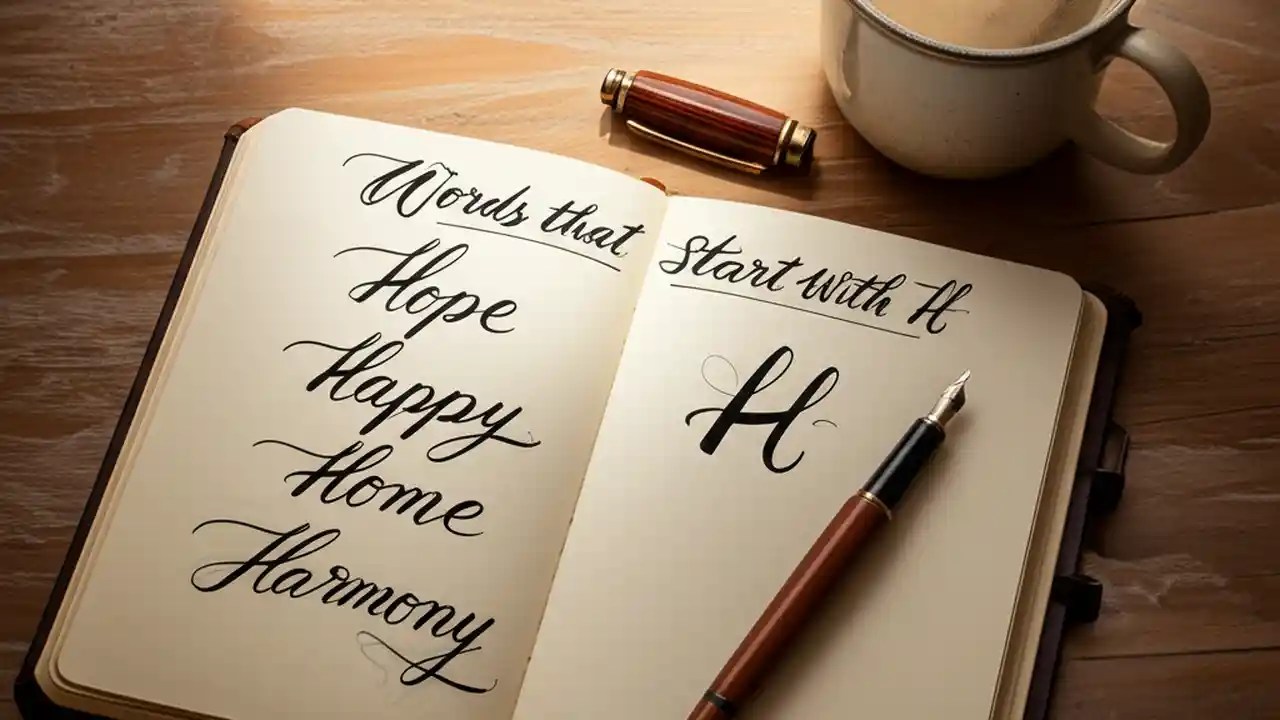 Words that
Hope
Happy
Home
Harmony
Start with H
H